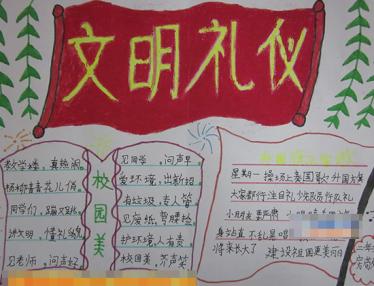 文明礼仪
教学楼，真热闹
杨柳青青花儿俏
同学们，蹦又跳
讲文明，懂礼貌
见老师，问声好
校园美
见同学，问声早
爱环境，出新招
有垃圾，专人管
见废纸，弯腰捡
护环境，人有责
校园美，齐声笑
星期一 操场上 奏国歌 升国旗
大家都行注目礼 少先队员行队礼
小朋友
身站直 不乱是
将来长大了 建设祖国更美丽